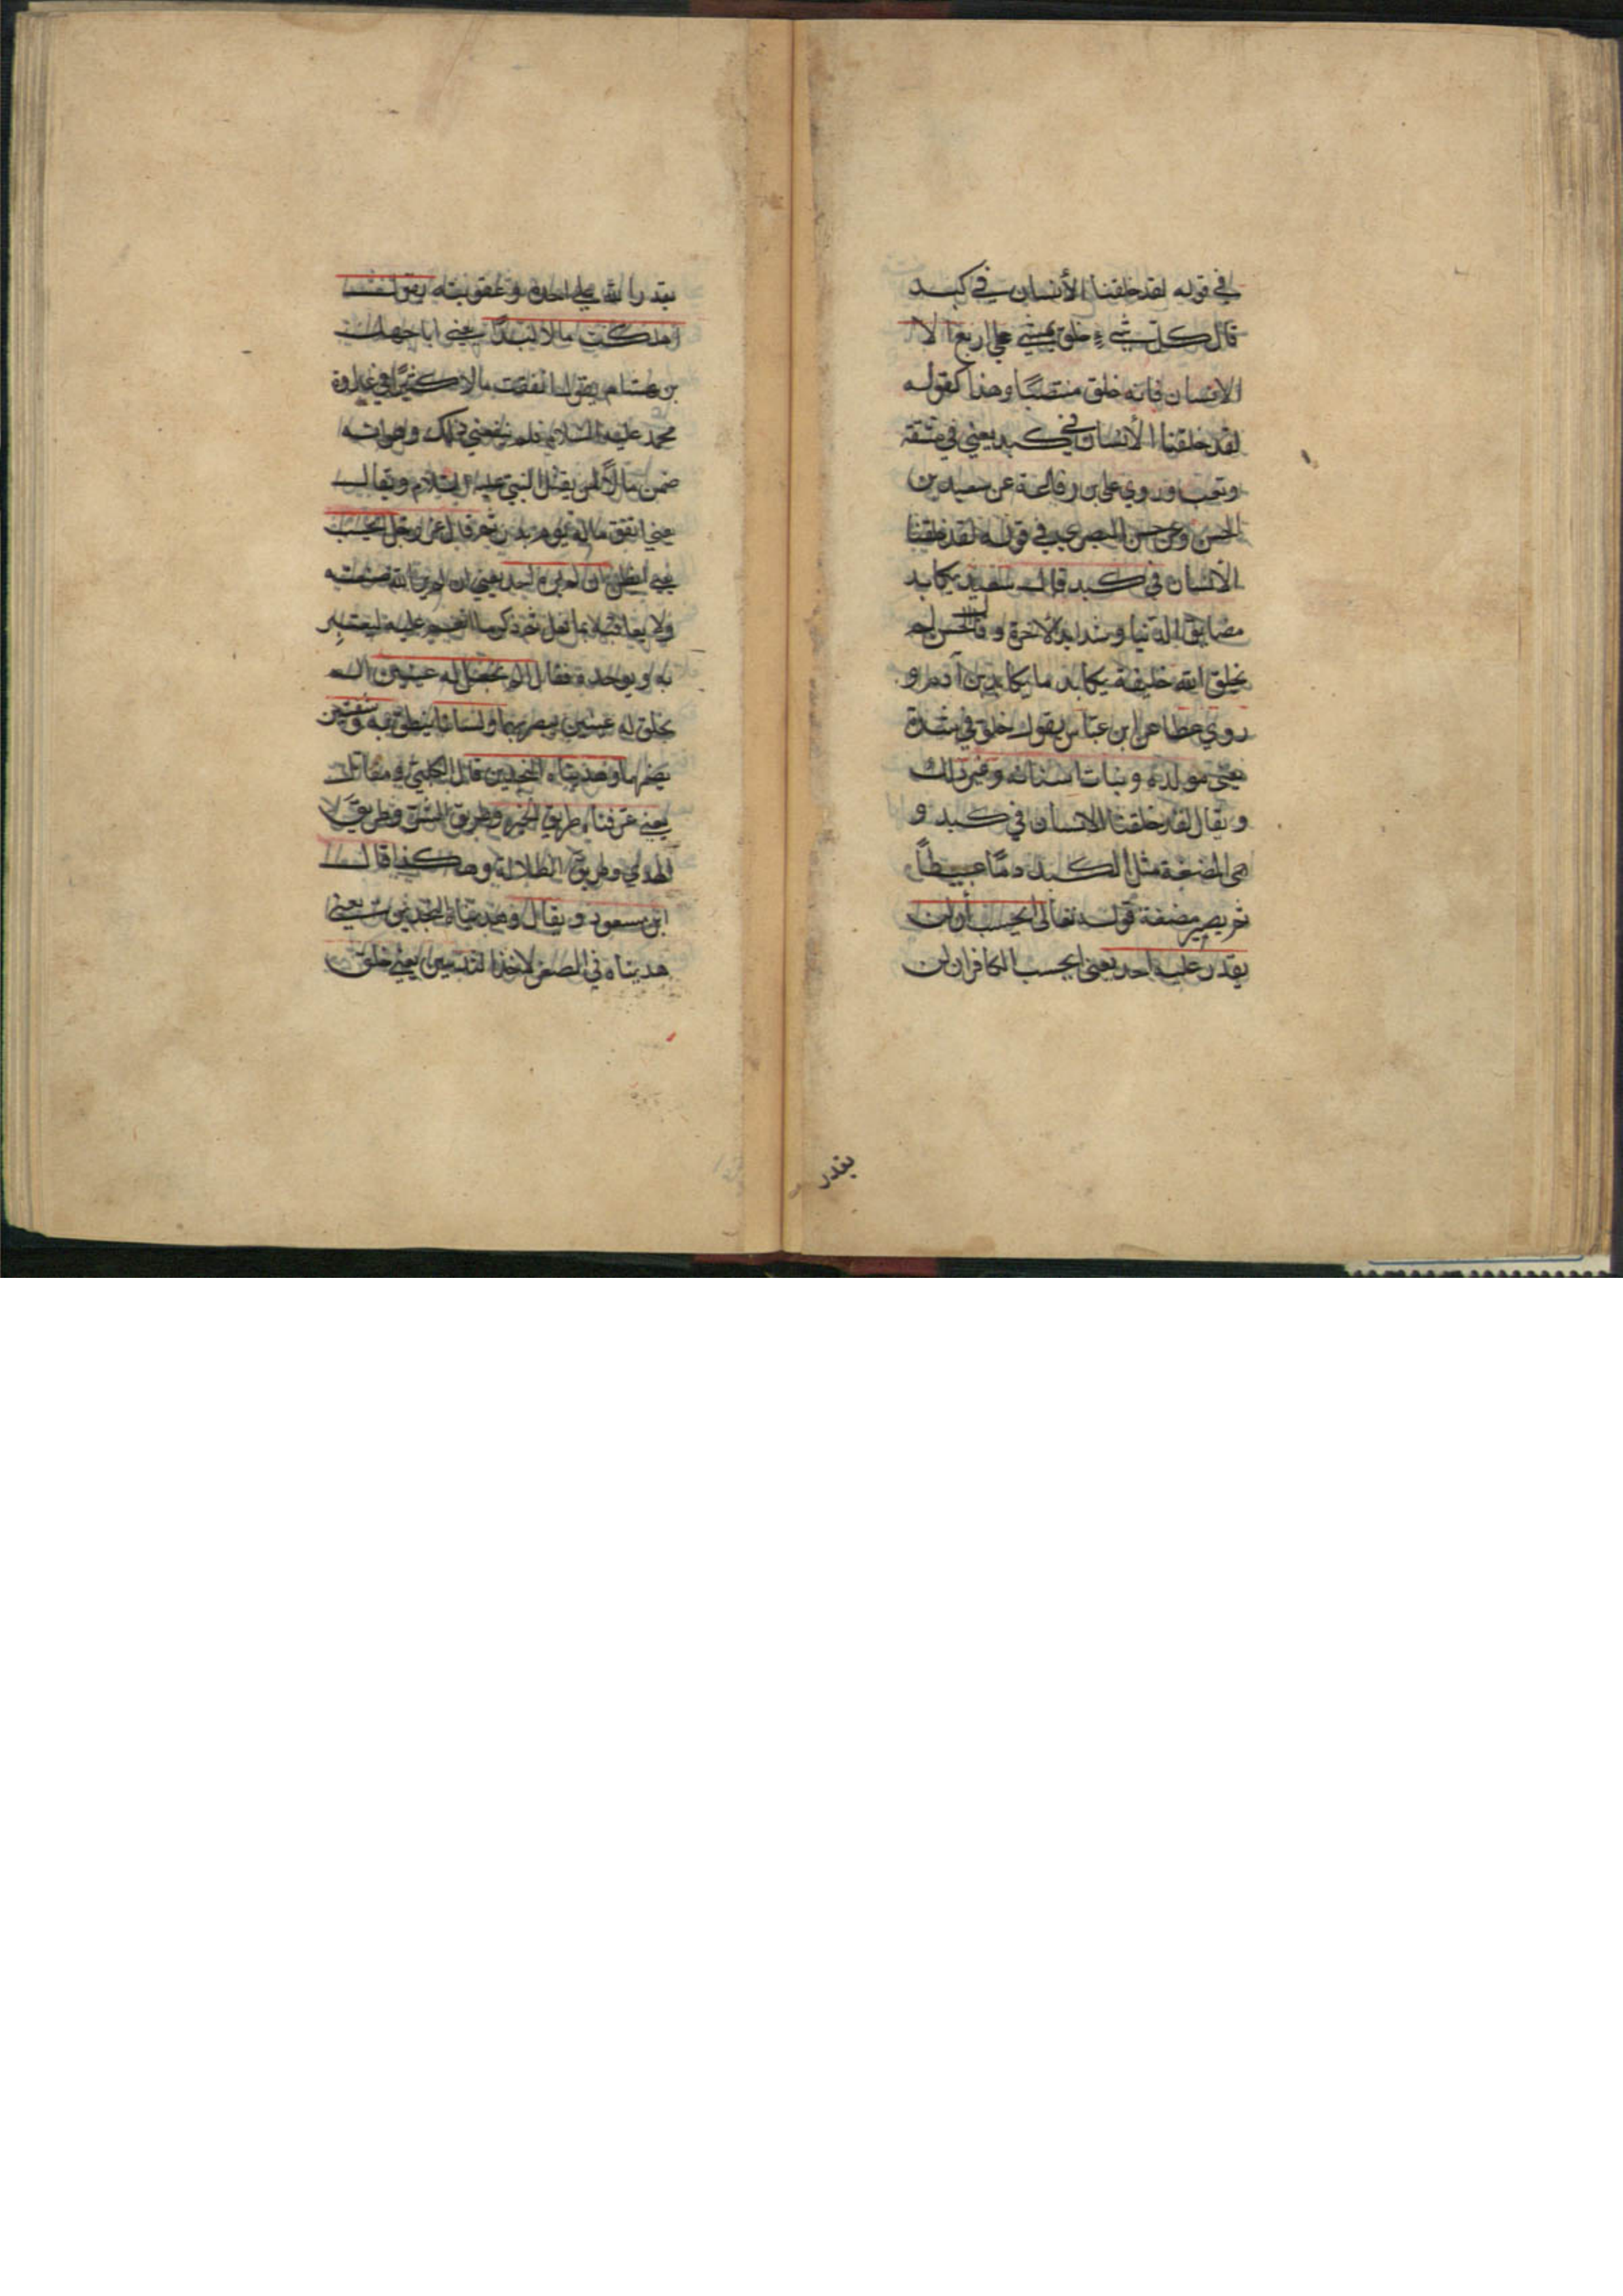 في قوله لقد خلقنا الأنسان في كبد
قال كل شيء خلق يمشي على اربع الا
الانسان فانه خلق منتصبًا وهذا كقوله
لقد خلقنا الأنسان في كبد يعني في مشقة
وتعب وروي علي بن رفاعة عن سعيد بن
الحسن وعن حسن البصري في قوله لقد خلقنا
الانسان في كبد قال سعيد يكابد
مضايق الدنيا وشدايد الاخرة وقال الحسن لم
يخلق الله خليقة يكابد ما يكابد بن آدم و
روي عطا عن ابن عباس يقول خلق في شدة
يعني مولده ونبات اسنانه وغير ذلك
ويقال لقد خلقنا الانسان في كبد و
هي المضغة مثل الكبد دمًا عبيطًا
ثم يصير مضغة قوله تعالى ايحسب أن لن
يقدر عليه احد يعني ايحسب الكافر ان لن
يقدر
يقدر الله على اخذه وعقوبته يقول
اهلكت مالا لبدًا يعني ابا جهل
بن هشام يقول انفقت مالا كثيرًا في عداوة
محمد عليه السلام فلم ينفعني ذلك
ضمن مالًا لمن يقتل النبي عليه السلام ويقال
يعني انفق ماله يوم بدر ثم قال عز وجل ايحسب
يعني ايظن ان لم يره احد يعني ان لم ير الله صنيعته
ولا يعاقبه بما فعل ثم ذكر ما انعم عليه ليعتبر
به ويوحده فقال الم نجعل له عينين الم
يخلق له عينين يبصر بهما ولسانا ينطق به وشفتين
يضمهما وهديناه النجدين قال الكلبي ومقاتل
يعني عرفناه طريق الخير وطريق الشر وطريق
الهدي وطريق الظلالة وهكذا قال
ابن مسعود ويقال وهديناه النجدين يعني
هديناه في الصغر لاخذ الثديين يعني خلق